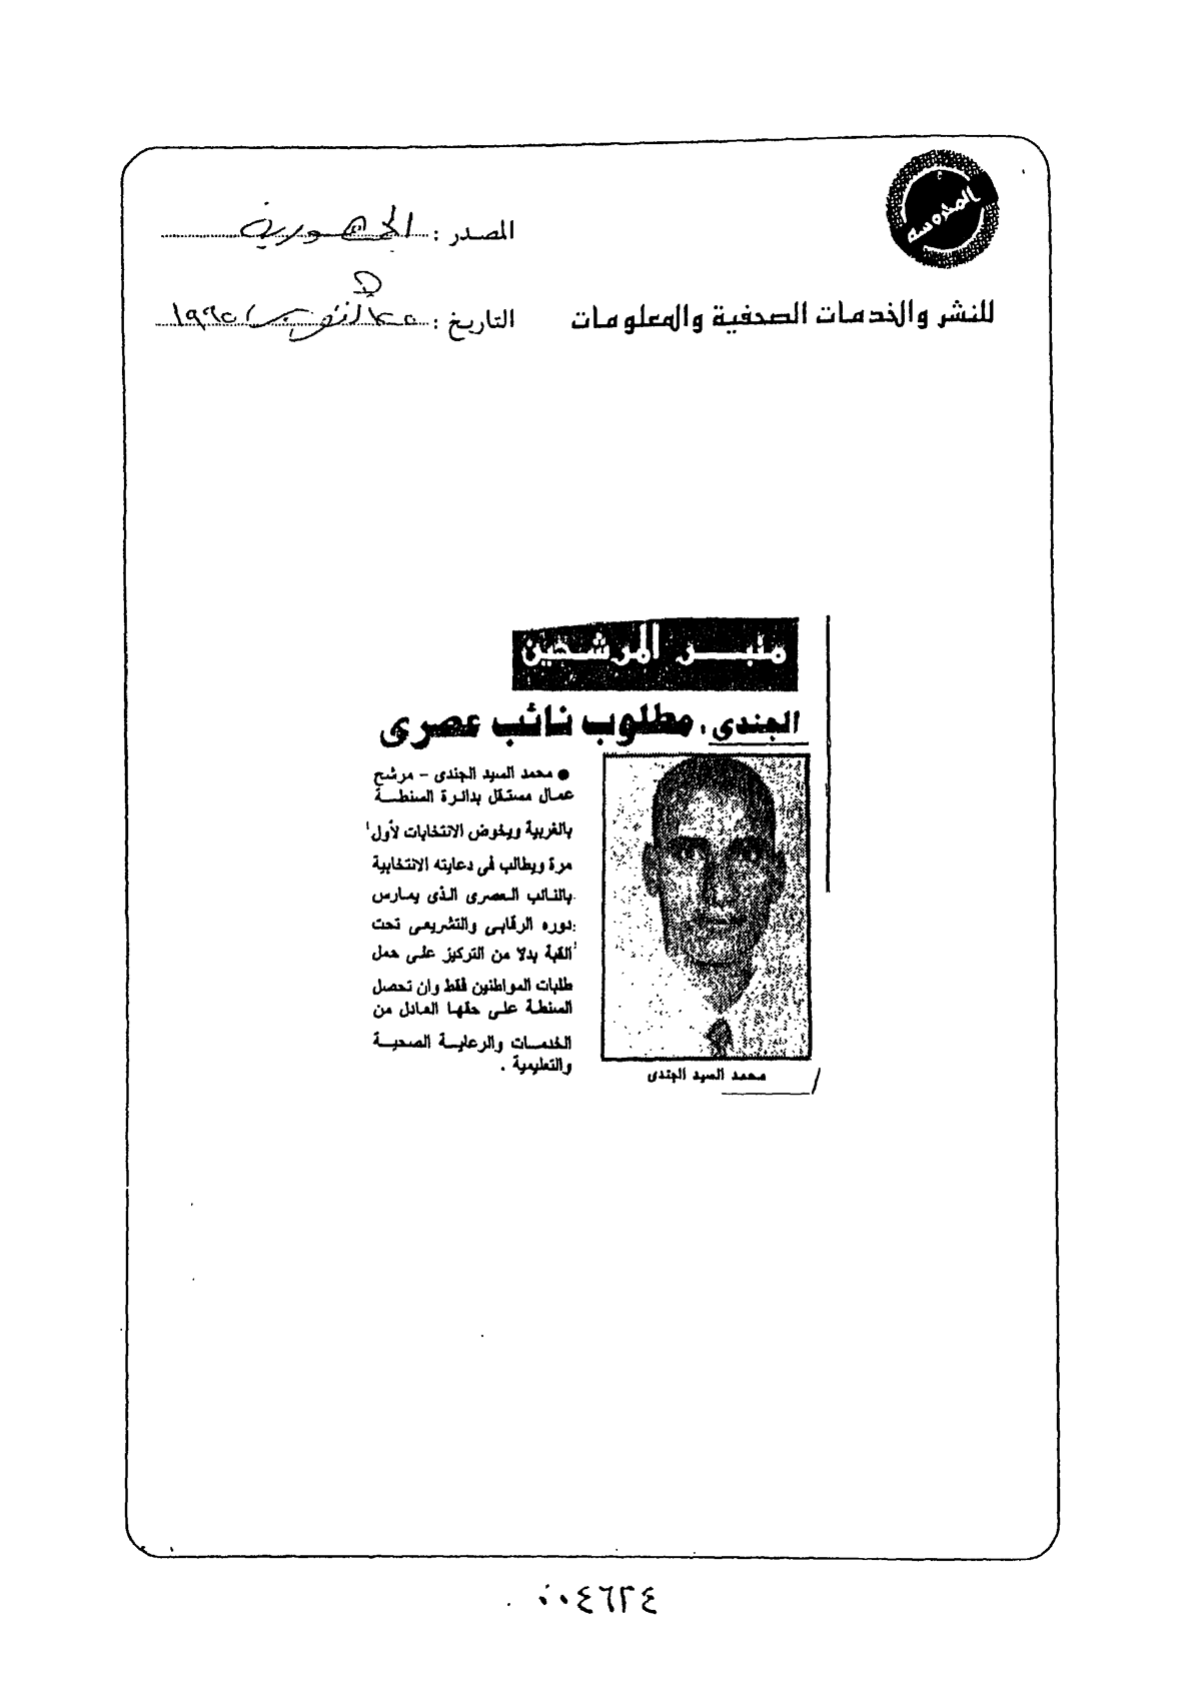 المحروسة
المصدر : الجمهورية
للنشر والخدمات الصحفية والمعلومات
التاريخ : أكتوبر ١٩٩٥
منبر المرشحين
الجندى : مطلوب نائب عصرى
● محمد السيد الجندى - مرشح
عمال مستقل بدائرة السنطة
بالغربية ويخوض الانتخابات لأول
مرة ويطالب فى دعايته الانتخابية
بالنائب العصرى الذى يمارس
دوره الرقابى والتشريعى تحت
القبة بدلا من التركيز على حمل
طلبات المواطنين فقط وان تحصل
السنطة على حقها العادل من
الخدمات والرعاية الصحية
والتعليمية .
محمد السيد الجندى
٠٠٤٦٢٤